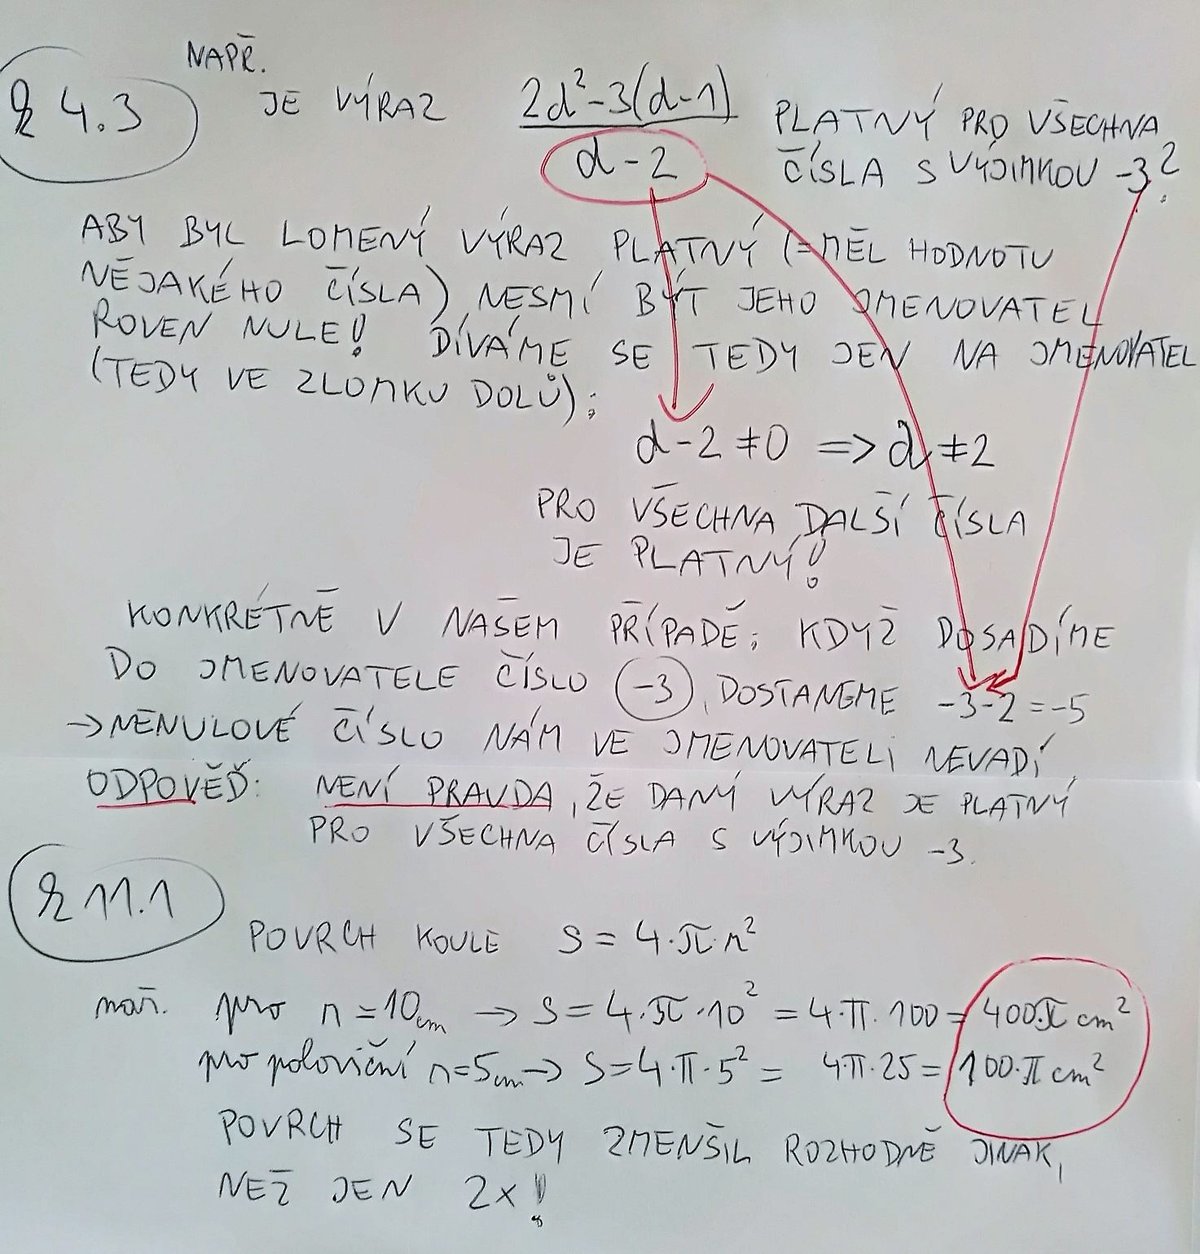 NAPŘ.
4.3 JE VÝRAZ 2d²-3(d-1) / d-2 PLATNÝ PRO VŠECHNA
ČÍSLA S VÝJIMKOU -3?
ABY BYL LOMENÝ VÝRAZ PLATNÝ (=MĚL HODNOTU
NĚJAKÉHO ČÍSLA) NESMÍ BÝT JEHO JMENOVATEL
ROVEN NULE! DÍVÁME SE TEDY JEN NA JMENOVATEL
(TEDY VE ZLOMKU DOLŮ):
d-2≠0 => d≠2
PRO VŠECHNA DALŠÍ ČÍSLA
JE PLATNÝ!
KONKRÉTNĚ V NAŠEM PŘÍPADĚ: KDYŽ DOSADÍME
DO JMENOVATELE ČÍSLO -3, DOSTANEME -3-2=-5
→NENULOVÉ ČÍSLO NÁM VE JMENOVATELI NEVADÍ
ODPOVĚĎ: NENÍ PRAVDA, ŽE DANÝ VÝRAZ JE PLATNÝ
PRO VŠECHNA ČÍSLA S VÝJIMKOU -3.
11.1
POVRCH KOULE S = 4·π·r²
např. pro r=10cm → S=4·π·10² = 4·π·100 = 400·π cm²
pro poloviční r=5cm → S=4·π·5² = 4·π·25 = 100·π cm²
POVRCH SE TEDY ZMENŠIL ROZHODNĚ JINAK,
NEŽ JEN 2x!